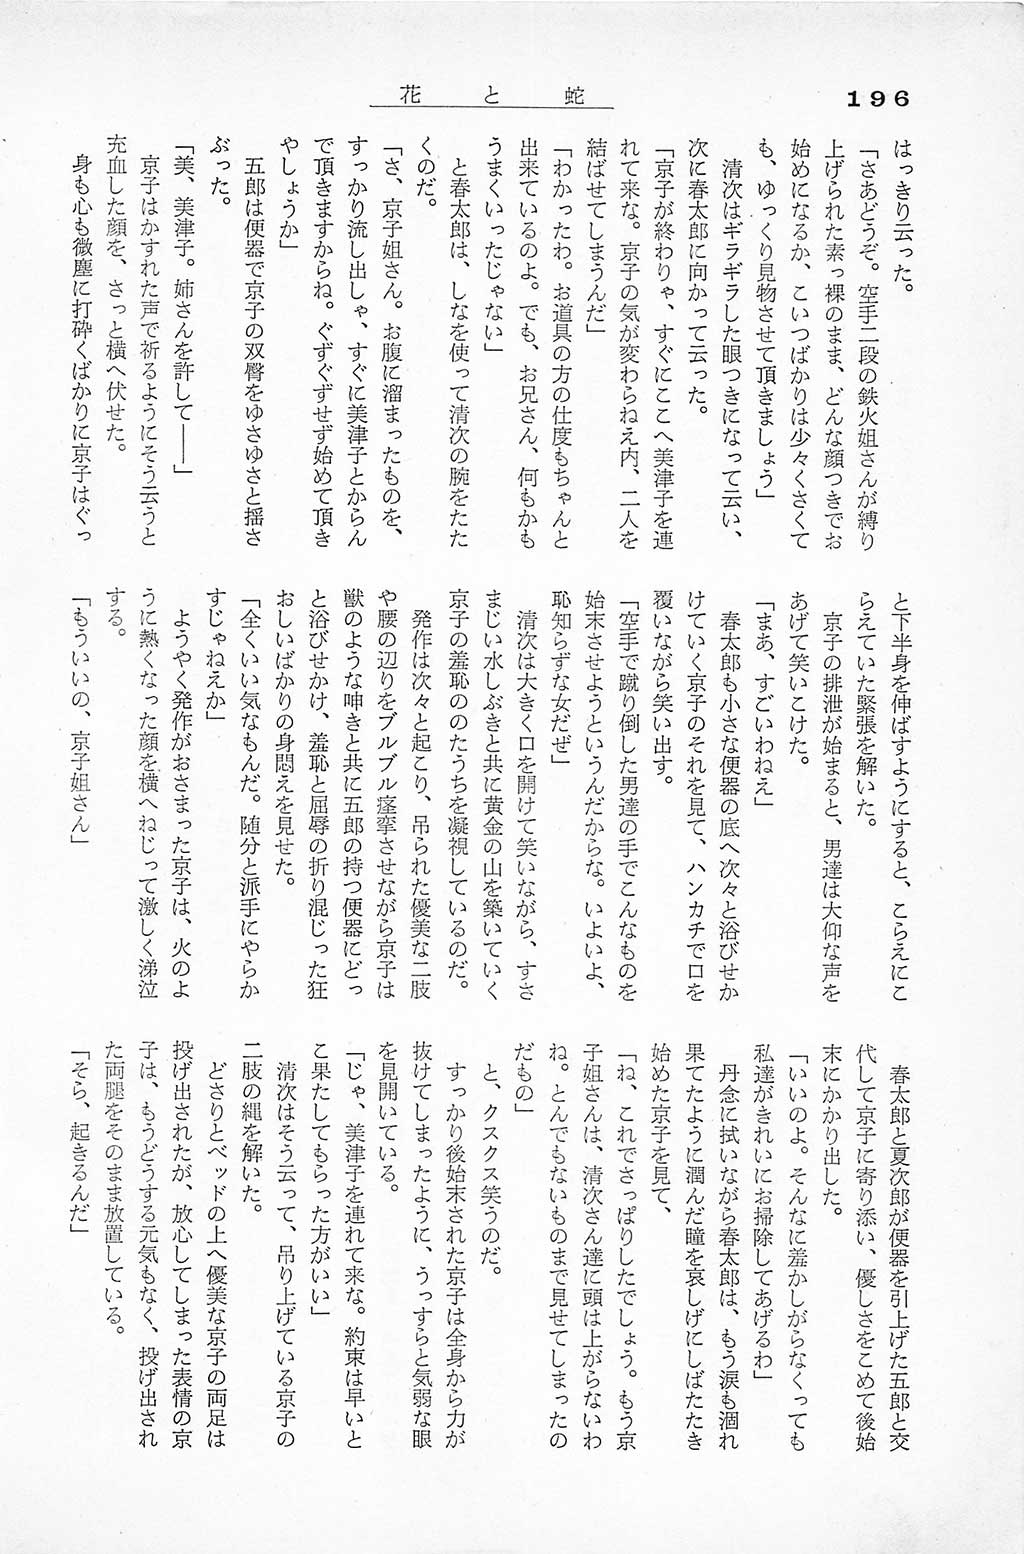 196
花と蛇
はっきり云った。
「さあどうぞ。空手二段の鉄火姐さんが縛り
上げられた素っ裸のまま、どんな顔つきでお
始めになるか、こいつばかりは少々くさくて
も、ゆっくり見物させて頂きましょう」
清次はギラギラした眼つきになって云い、
次に春太郎に向かって云った。
「京子が終わりゃ、すぐにここへ美津子を連
れて来な。京子の気が変わらねえ内、二人を
結ばせてしまうんだ」
「わかったわ。お道具の方の仕度もちゃんと
出来ているのよ。でも、お兄さん、何もかも
うまくいったじゃない」
と春太郎は、しなを使って清次の腕をたた
くのだ。
「さ、京子姐さん。お腹に溜まったものを、
すっかり流し出しゃ、すぐに美津子とからん
で頂きますからね。ぐずぐずせず始めて頂き
やしょうか」
五郎は便器で京子の双臀をゆさゆさと揺さ
ぶった。
「美、美津子。姉さんを許して――」
京子はかすれた声で祈るようにそう云うと
充血した顔を、さっと横へ伏せた。
身も心も微塵に打砕くばかりに京子はぐっ
と下半身を伸ばすようにすると、こらえにこ
らえていた緊張を解いた。
京子の排泄が始まると、男達は大仰な声を
あげて笑いこけた。
「まあ、すごいわねえ」
春太郎も小さな便器の底へ次々と浴びせか
けていく京子のそれを見て、ハンカチで口を
覆いながら笑い出す。
「空手で蹴り倒した男達の手でこんなものを
始末させようというんだからな。いよいよ、
恥知らずな女だぜ」
清次は大きく口を開けて笑いながら、すさ
まじい水しぶきと共に黄金の山を築いていく
京子の羞恥ののたうちを凝視しているのだ。
発作は次々と起こり、吊られた優美な二肢
や腰の辺りをブルブル痙攣させながら京子は
獣のような呻きと共に五郎の持つ便器にどっ
と浴びせかけ、羞恥と屈辱の折り混じった狂
おしいばかりの身悶えを見せた。
「全くいい気なもんだ。随分と派手にやらか
すじゃねえか」
ようやく発作がおさまった京子は、火のよ
うに熱くなった顔を横へねじって激しく涕泣
する。
「もういいの、京子姐さん」
春太郎と夏次郎が便器を引上げた五郎と交
代して京子に寄り添い、優しさをこめて後始
末にかかり出した。
「いいのよ。そんなに羞かしがらなくっても
私達がきれいにお掃除してあげるわ」
丹念に拭いながら春太郎は、もう涙も涸れ
果てたように潤んだ瞳を哀しげにしばたたき
始めた京子を見て、
「ね、これでさっぱりしたでしょう。もう京
子姐さんは、清次さん達に頭は上がらないわ
ね。とんでもないものまで見せてしまったの
だもの」
と、クスクス笑うのだ。
すっかり後始末された京子は全身から力が
抜けてしまったように、うっすらと気弱な眼
を見開いている。
「じゃ、美津子を連れて来な。約束は早いと
こ果たしてもらった方がいい」
清次はそう云って、吊り上げている京子の
二肢の縄を解いた。
どさりとベッドの上へ優美な京子の両足は
投げ出されたが、放心してしまった表情の京
子は、もうどうする元気もなく、投げ出され
た両腿をそのまま放置している。
「そら、起きるんだ」